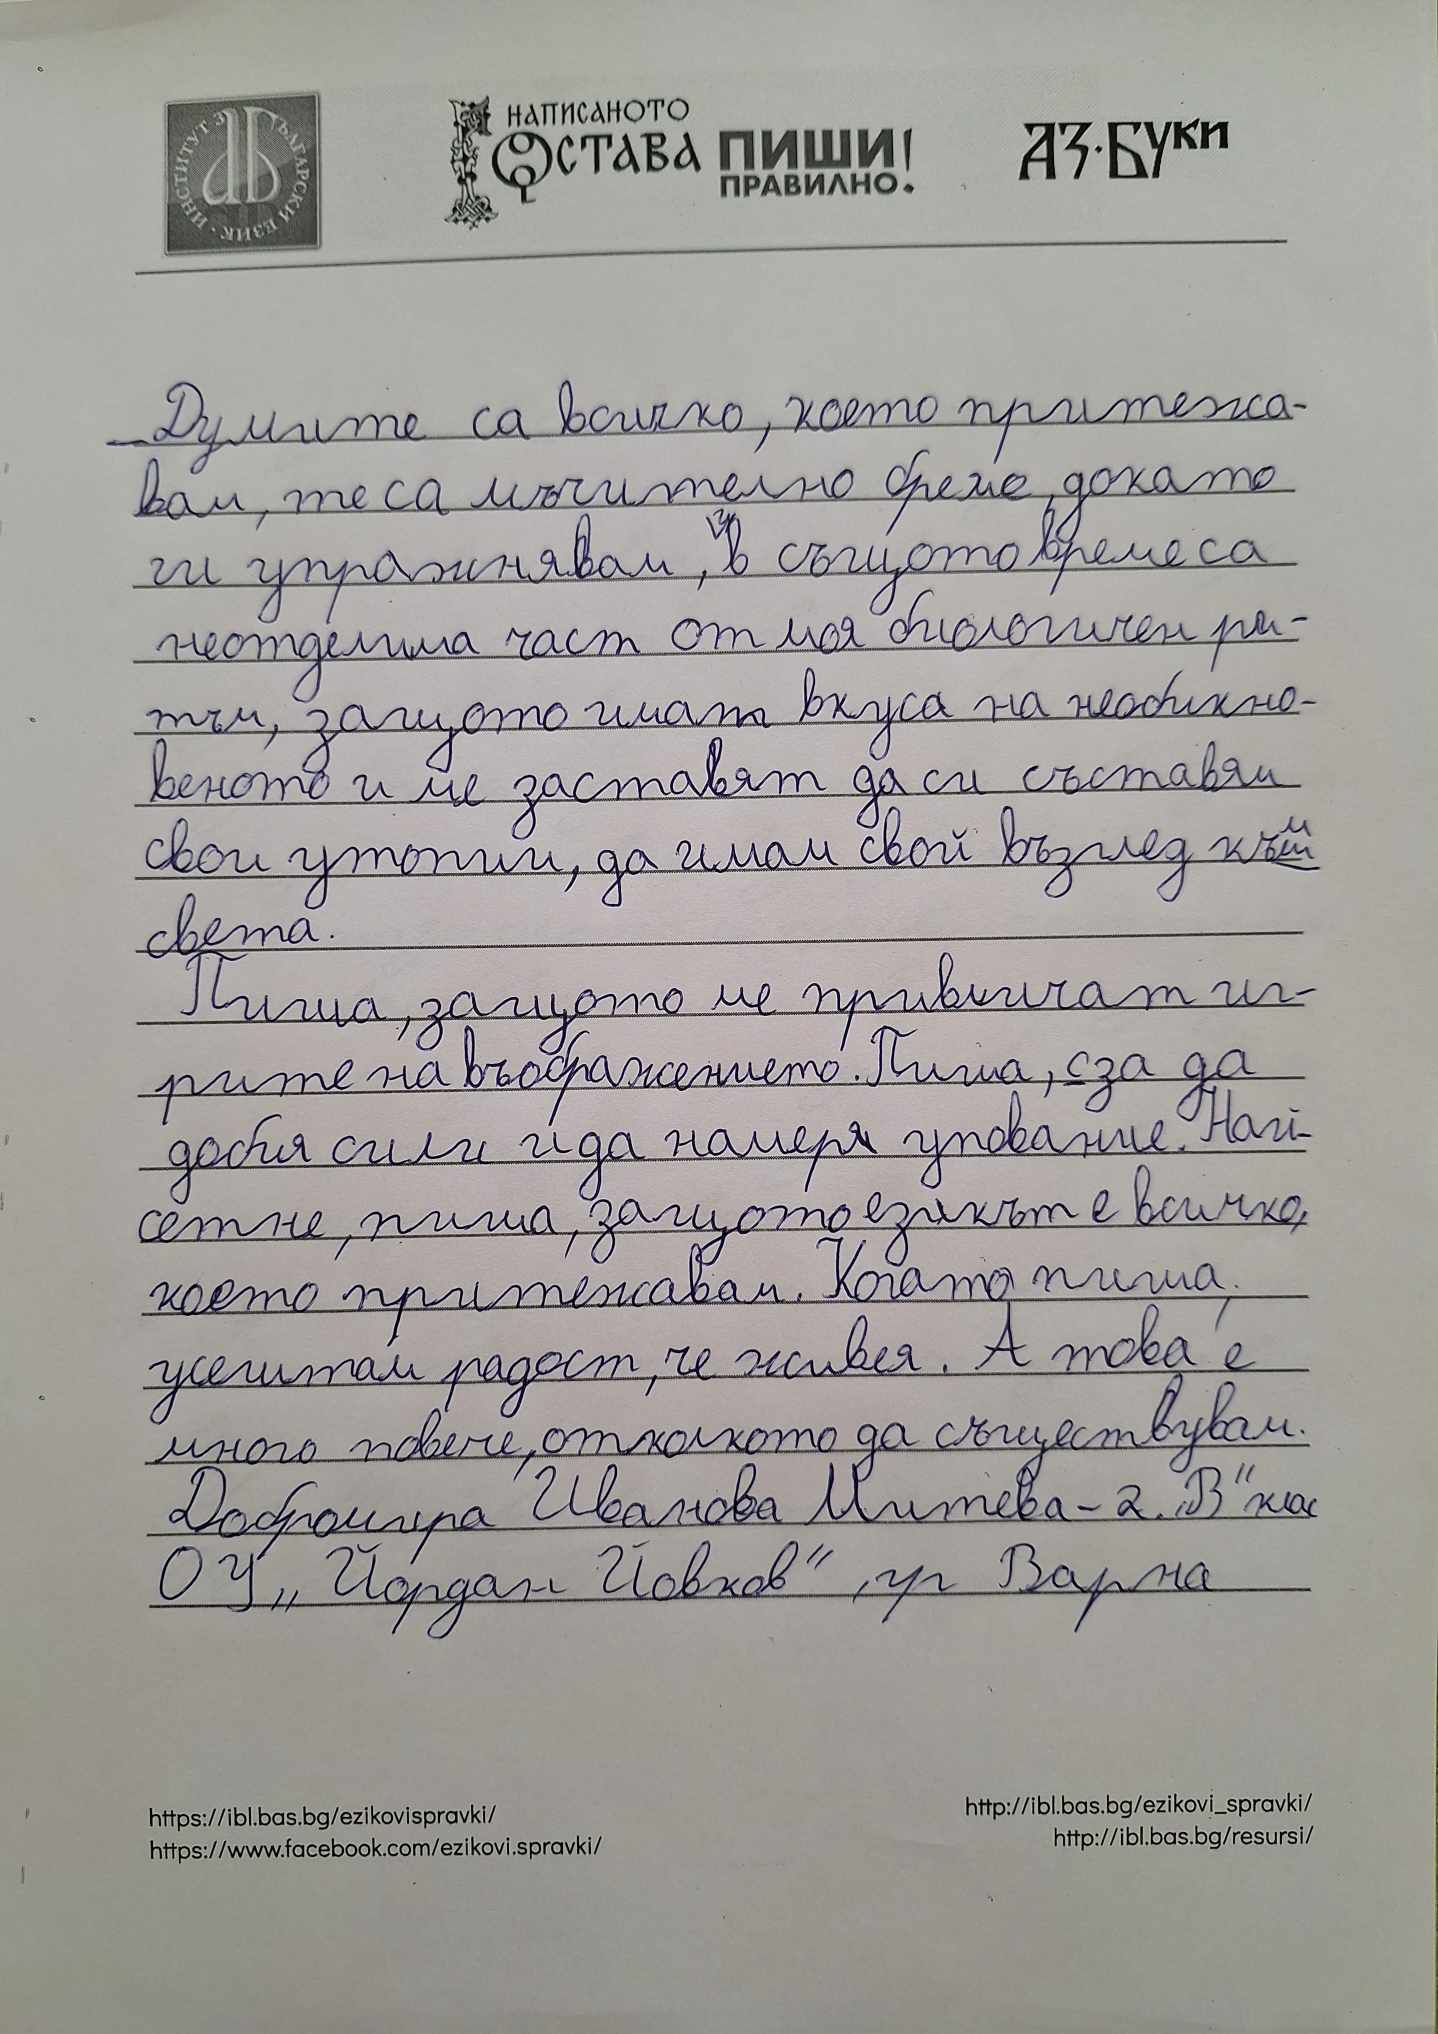 ИНСТИТУТ ЗА БЪЛГАРСКИ ЕЗИК
НАПИСАНОТО
ОСТАВА
ПИШИ
ПРАВИЛНО!
АЗ·БУКИ
Думите са всичко, което притежа-
вам, те са мъчително бреме, докато
ги упражнявам, и в същото време са
неотделима част от моя биологичен ри-
тъм, защото имат вкуса на необикно-
веното и ме заставят да си съставям
свои утопии, да имам свой възглед към
света.
Пиша, защото ме привличат иг-
рите на въображението. Пиша, за да
добия сили и да намеря упование. Най-
сетне, пиша, защото езикът е всичко,
което притежавам. Когато пиша,
усещам радост, че живея. А това е
много повече, отколкото да съществувам.
Доброшира Иванова Митева - 2. "В" клас
ОУ „Йордан Йовков", гр Варна
https://ibl.bas.bg/ezikovispravki/
http://ibl.bas.bg/ezikovi_spravki/
https://www.facebook.com/ezikovi.spravki/
http://ibl.bas.bg/resursi/